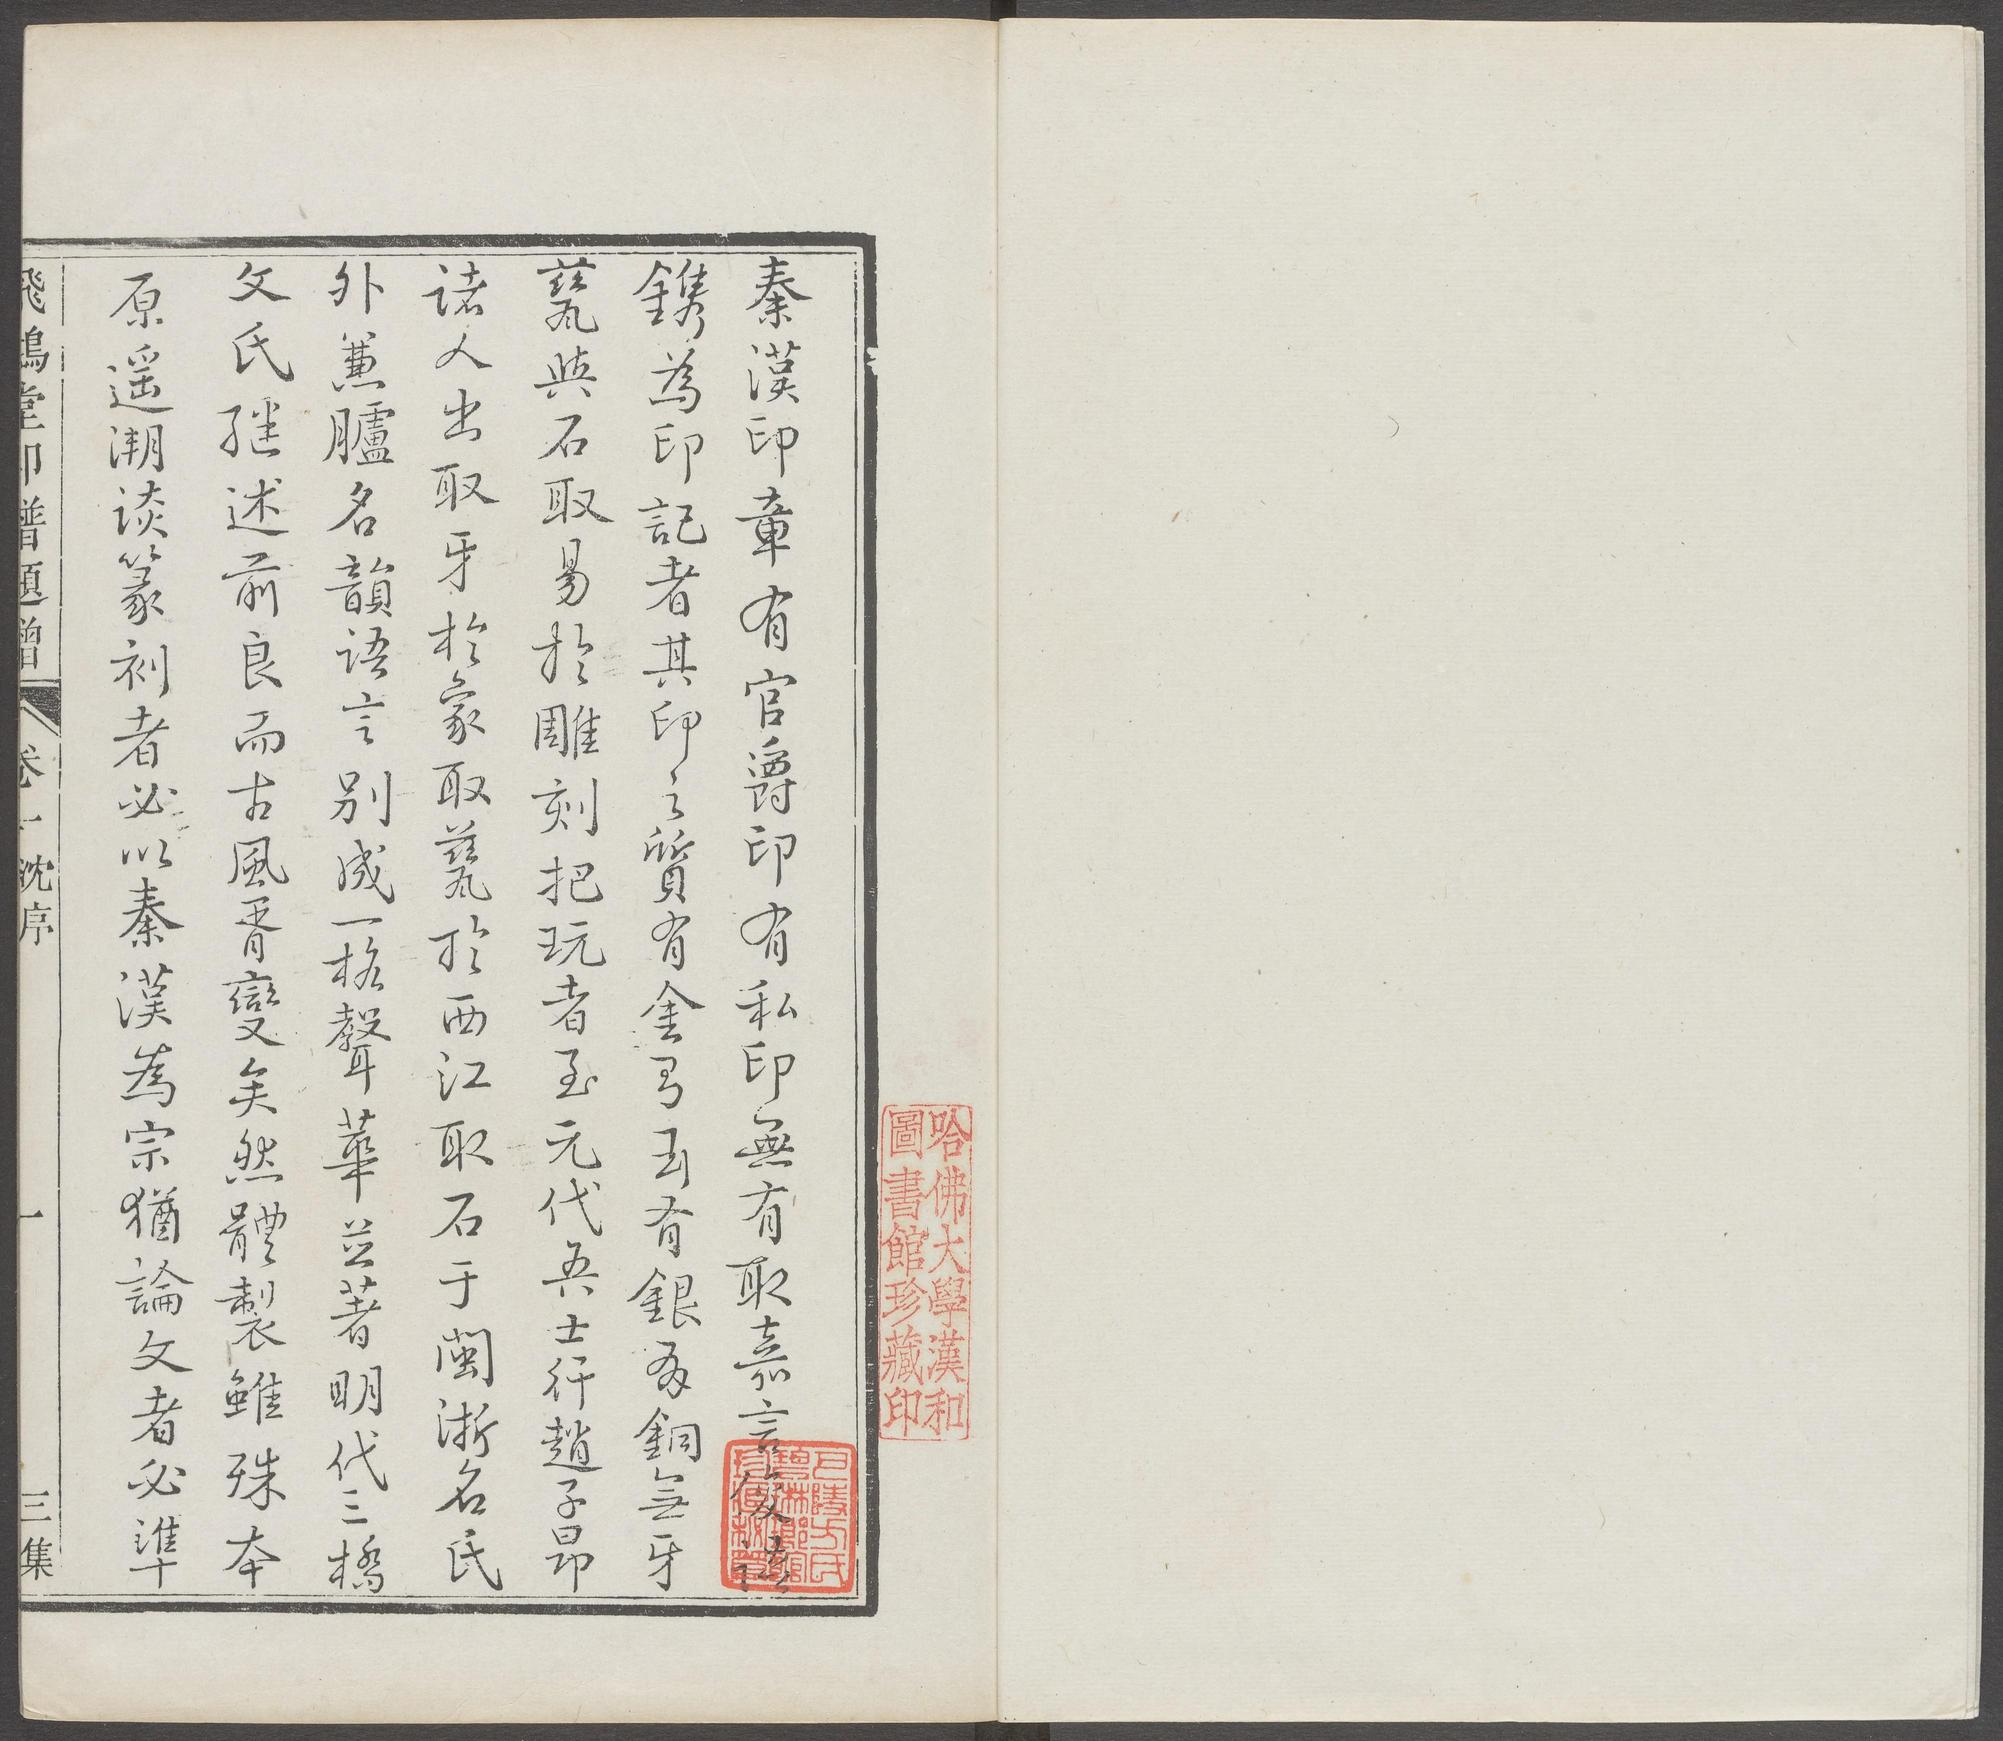 秦漢印章有官爵印有私印無有取嘉言雋語
鐫為印記者其印之質有金有玉有銀有銅無牙
甆與石取易於雕刻把玩者至元代吾士行趙子昂
諸人出取牙於象取甆於西江取石于閩浙名氏
外兼臚名韻語言別成一格聲華並著明代三橋
文氏繼述前良而古風胥變矣然體製雖殊本
原遥溯談篆刻者必以秦漢為宗猶論文者必準
飛鴻堂印譜題贈 卷一沈序 一 三集
哈佛大學漢和
圖書館珍藏印
巴陵方氏
碧琳瑯館
珍藏秘籍